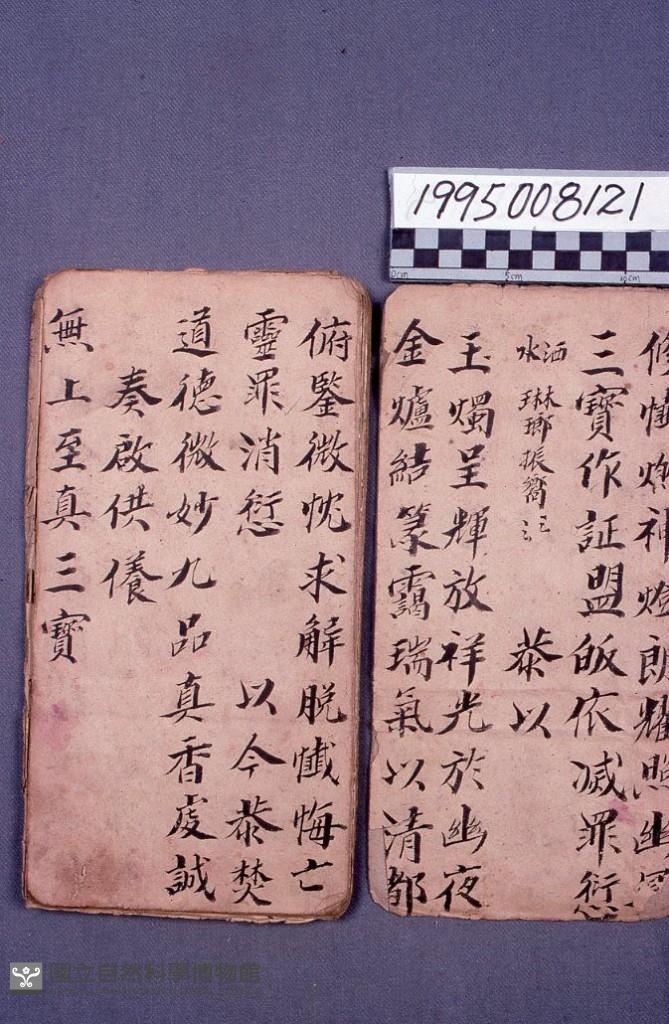 1995008121
0cm 5cm 10cm
修懺燃神燈朗耀照幽
三寶作証盟皈依滅罪愆
洒水 琳瑯振嚮 恭以
玉燭呈輝放祥光於幽夜
金爐結篆靄瑞氣以清都
俯鑒微忱求解脱懺悔亡
靈罪消愆 以今恭焚
道德微妙九品真香虔誠
奏啟供養
無上至真三寶
國立自然科學博物館